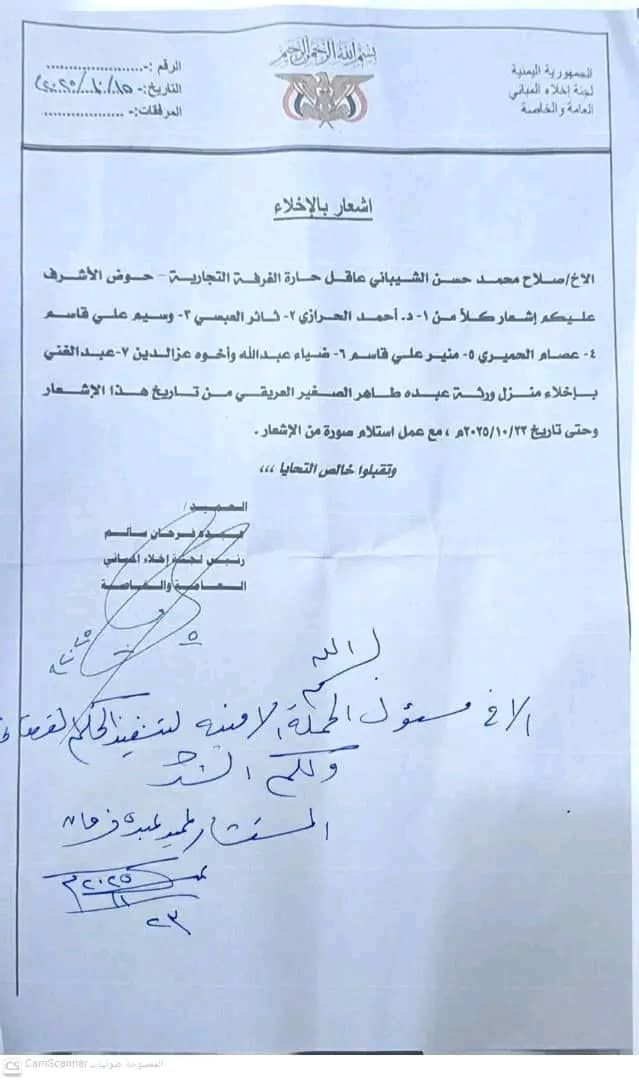 بسم الله الرحمن الرحيم
الجمهورية اليمنية
لجنة إخلاء المباني
العامة والخاصة
الرقم :-
التاريخ:- ٢٠٢٥/١٠/١٥
المرفقات:-
اشعار بالإخلاء
الاخ/صلاح محمد حسن الشيباني عاقل حارة الغرفة التجارية - حوض الأشرف
عليكم إشعار كلاً من ١- د. أحمد الحرازي ٢- ثائر العبسي ٣- وسيم علي قاسم
٤- عصام الحميري ٥- منير علي قاسم ٦- ضياء عبدالله وأخوه عزالدين ٧-عبدالغني
بإخلاء منزل ورثة عبده طاهر الصغير العريقي من تاريخ هذا الإشعار
وحتى تاريخ ٢٠٢٥/١٠/٢٢م ، مع عمل استلام صورة من الإشعار .
وتقبلوا خالص التحايا ،،،
العميد /
عبده فرحان سالم
رئيس لجنة إخلاء المباني
العامة والخاصة
بسم الله
الاخ مسؤول الحملة الامنيه لتنفيذ الحكم
ولكم الشكر
المستشار عبده فرحان
٢٠٢٥م
١١
٢٣
CS CamScanner الممسوحة ضوئيا بـ